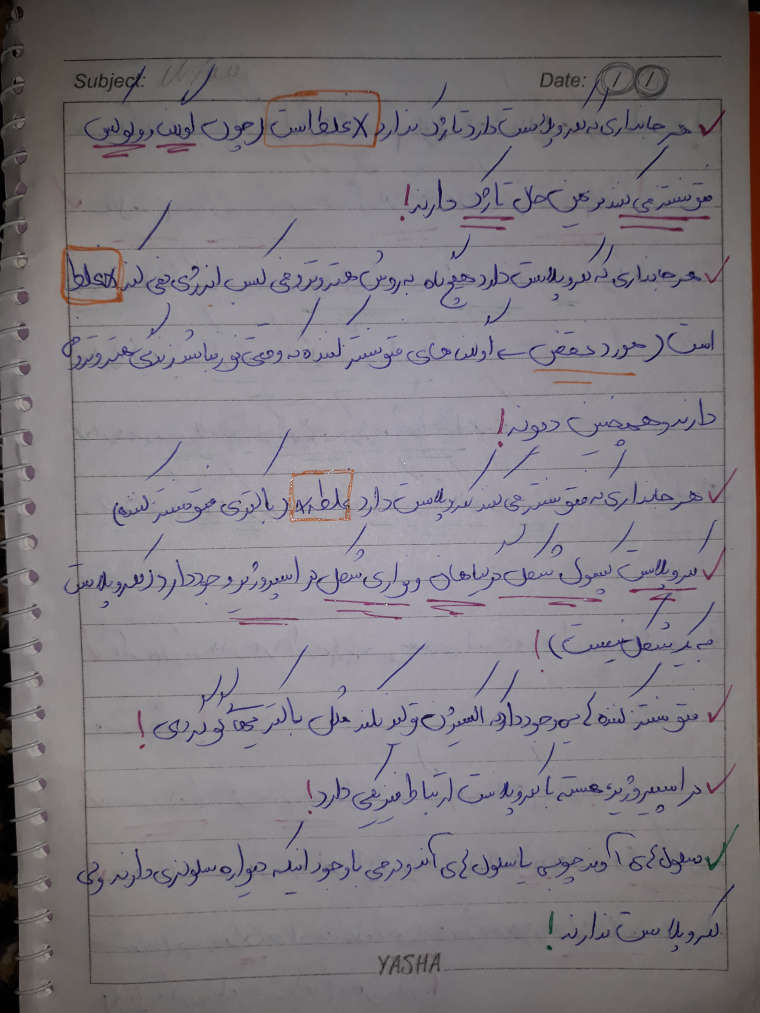 Subject:
Date: / /
✓ هر جانداری که کلروپلاست دارد تاژک ندارد × غلط است (چون اوگلنا و ولوکس
فتوسنتز می کنند در عین حال تاژک دارند!
✓ هر جانداری که کلروپلاست دارد هیچ گاه به روش هتروتروفی کسب انرژی نمی کند × غلط
است (مورد نقض ← اوگلنا های فتوسنتز کننده که وقتی نور نباشد زندگی هتروتروفی
دارند و همچنین دیونه!
✓ هر جانداری که فتوسنتز می کند کلروپلاست دارد غلط × (باکتری فتوسنتز کننده)
✓ کلروپلاست کپسول شکل در گیاهان و نواری شکل در اسپیروژیر وجود دارد (کلروپلاست
به یک شکل نیست)!
✓ فتوسنتز کننده ای وجود دارد که اکسیژن تولید نکند مثل باکتریهای گوگردی!
✓ در اسپیروژیر هسته با کلروپلاست ارتباط فیزیکی دارد!
✓ سلول های آوند چوبی یا سلول های آندودرمی با وجود اینکه دیواره سلولزی دارند ولی
کلروپلاست ندارند!
YASHA